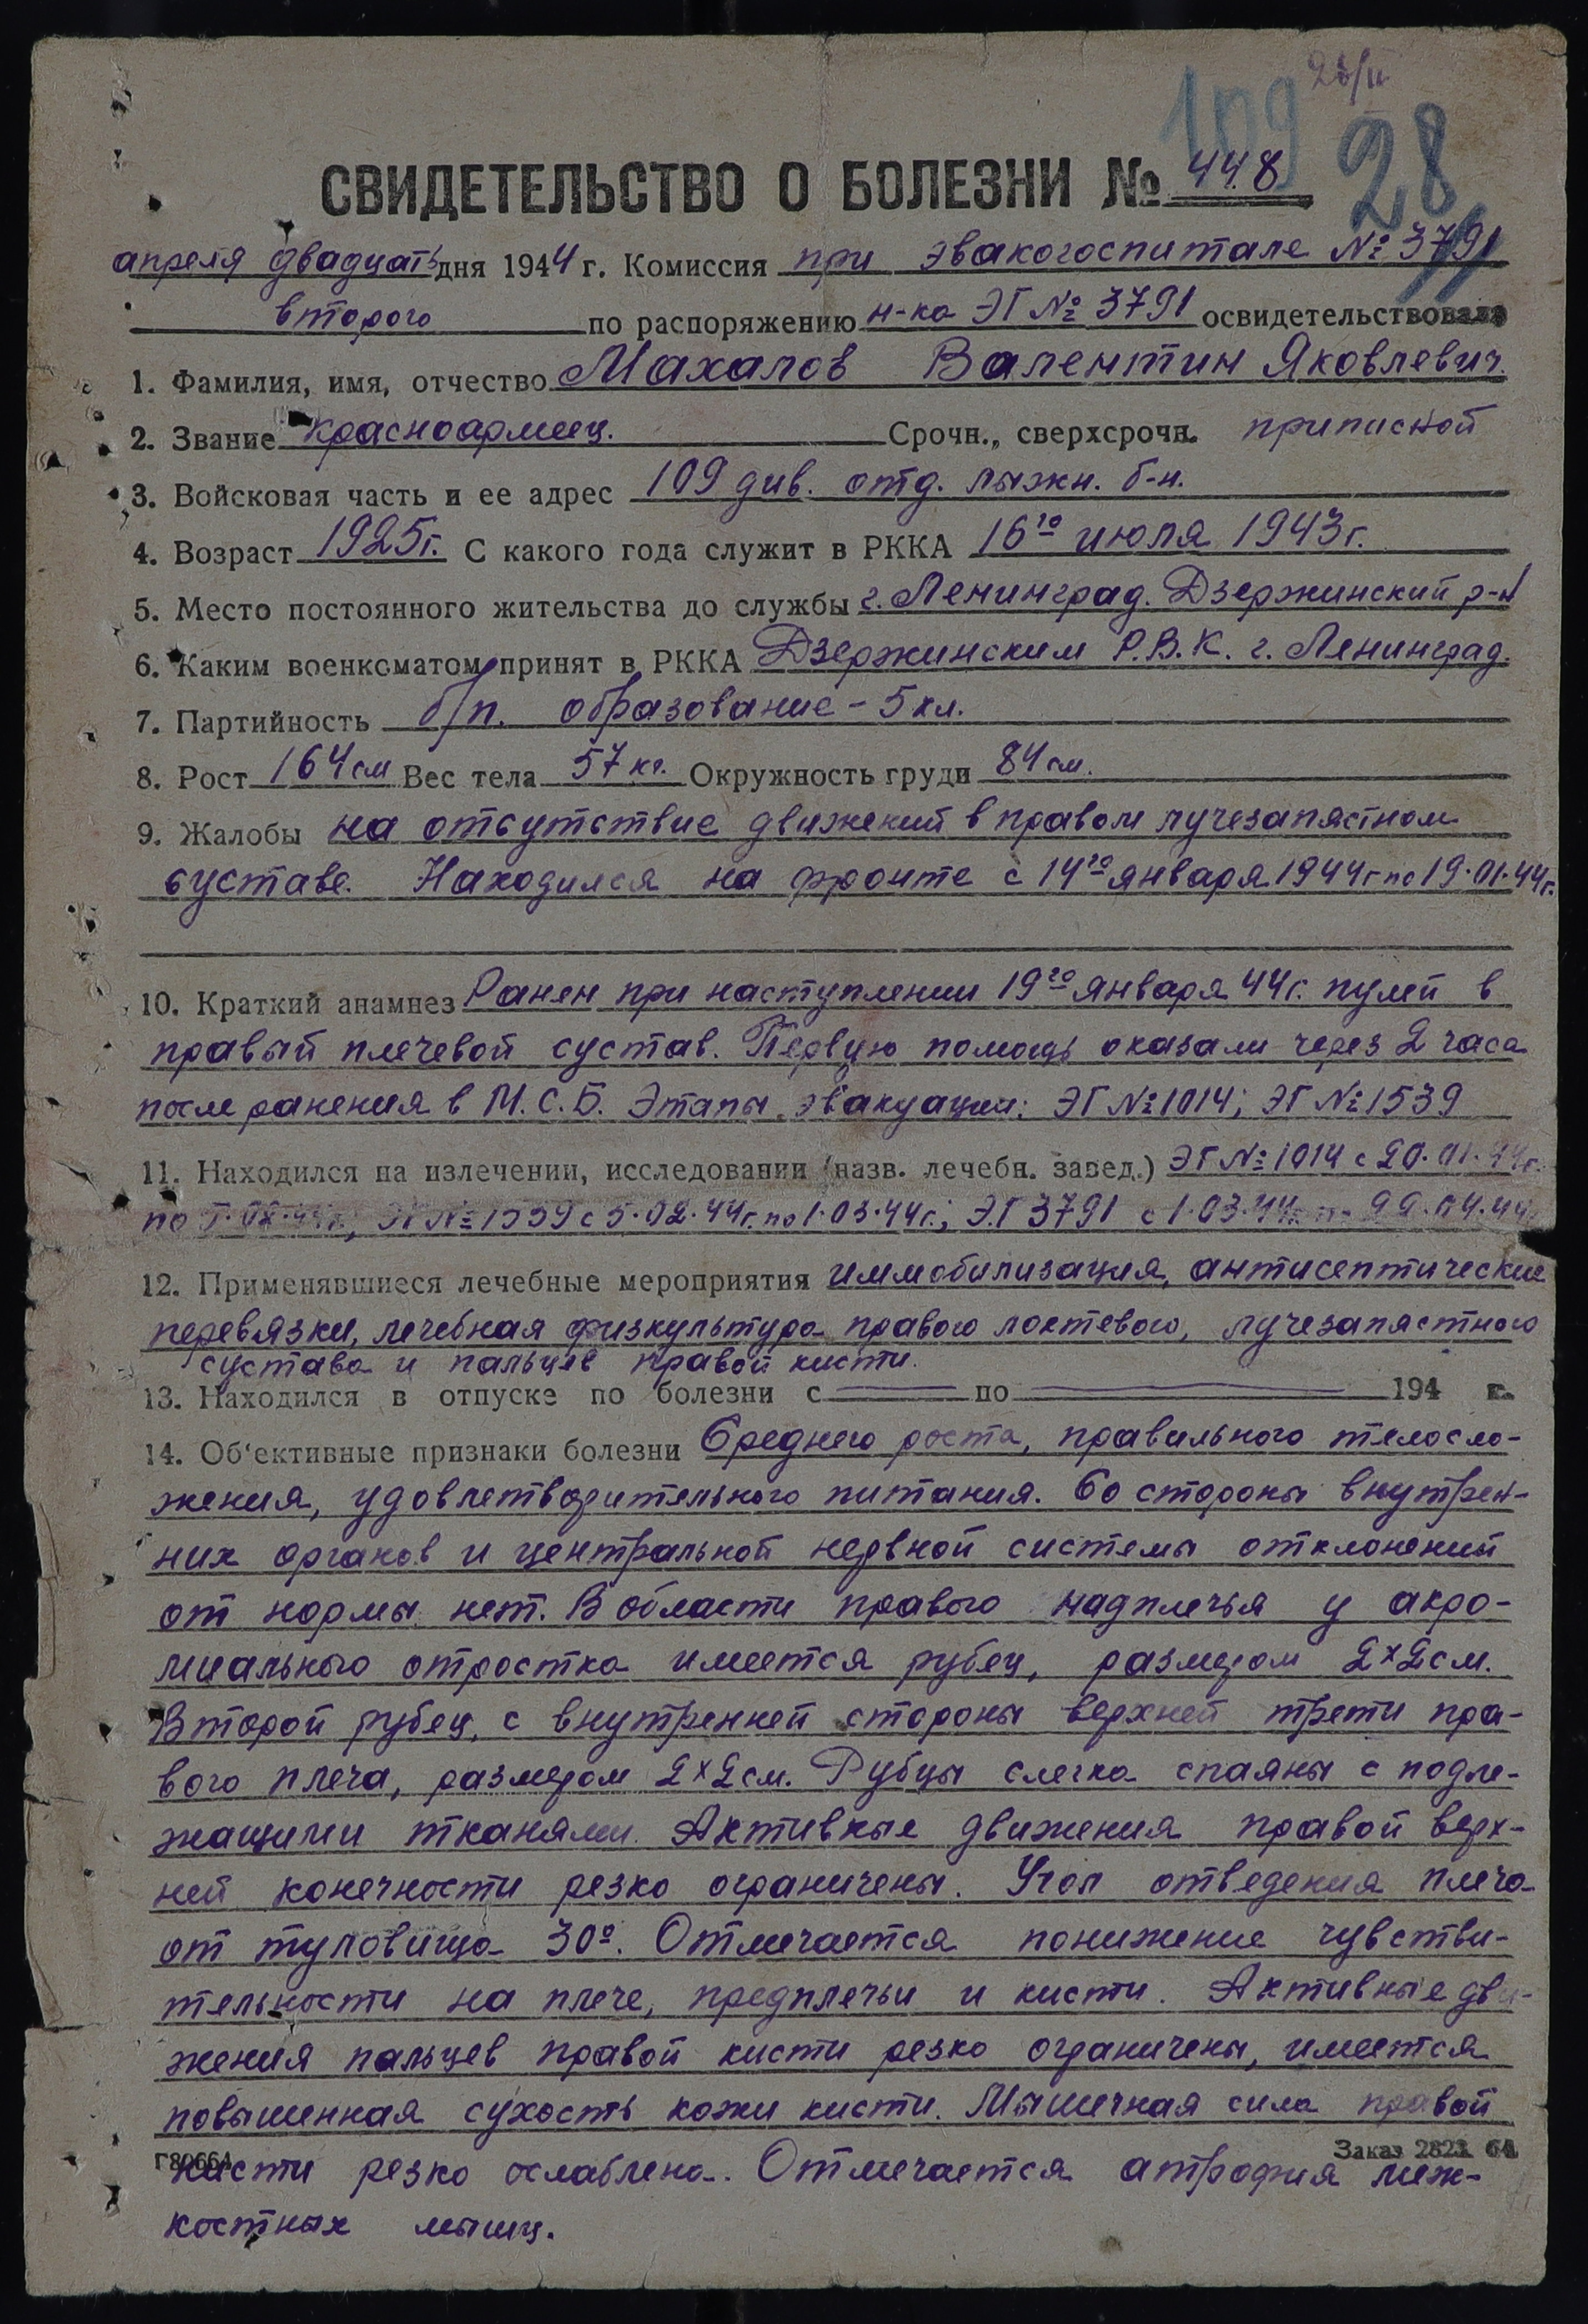 23/II
109
28
СВИДЕТЕЛЬСТВО О БОЛЕЗНИ № 448
апреля двадцать дня 1944 г. Комиссия при эвакогоспитале № 3791
второго по распоряжению н-ка ЭГ № 3791 освидетельствовала
1. Фамилия, имя, отчество Махалов Валентин Яковлевич.
2. Звание Красноармеец. Срочн., сверхсрочн. приписной
3. Войсковая часть и ее адрес 109 див. отд. лыжн. б-н.
4. Возраст 1925г. С какого года служит в РККА 16го июля 1943г.
5. Место постоянного жительства до службы г. Ленинград. Дзержинский р-н
6. Каким военкоматом принят в РККА Дзержинским Р.В.К. г. Ленинград.
7. Партийность б/п. образование - 5 кл.
8. Рост 164 см Вес тела 57 кг. Окружность груди 84 см.
9. Жалобы на отсутствие движений в правом лучезапястном
суставе. Находился на фронте с 14го января 1944г по 19.01.44г.
10. Краткий анамнез Ранен при наступлении 19го января 44г. пулей в
правый плечевой сустав. Первую помощь оказали через 2 часа
после ранения в М.С.Б. Этапы эвакуации: ЭГ №1014; ЭГ №1539
11. Находился на излечении, исследовании (назв. лечебн. завед.) ЭГ №1014 с 20.01.44г.
по 5.02.44г., ЭГ №1539 с 5.02.44г. по 1.03.44г.; ЭГ 3791 с 1.03.44г. по 22.04.44г.
12. Применявшиеся лечебные мероприятия иммобилизация, антисептические
перевязки, лечебная физкультура правого локтевого, лучезапястного
сустава и пальцев правой кисти.
13. Находился в отпуске по болезни с по 194 г.
14. Об'ективные признаки болезни Среднего роста, правильного телосло-
жения, удовлетворительного питания. Со стороны внутрен-
них органов и центральной нервной системы отклонений
от нормы нет. В области правого надплечья у акро-
миального отростка имеется рубец, размером 2×2 см.
Второй рубец, с внутренней стороны верхней трети пра-
вого плеча, размером 2×2 см. Рубцы слегка спаяны с подле-
жащими тканями. Активные движения правой верх-
ней конечности резко ограничены. Угол отведения плеча
от туловища 30º. Отмечается понижение чувстви-
тельности на плече, предплечьи и кисти. Активные дви-
жения пальцев правой кисти резко ограничены, имеется
повышенная сухость кожи кисти. Мышечная сила правой
Г80664 Заказ 2821 64
кисти резко ослаблена. Отмечается атрофия меж-
костных мышц.